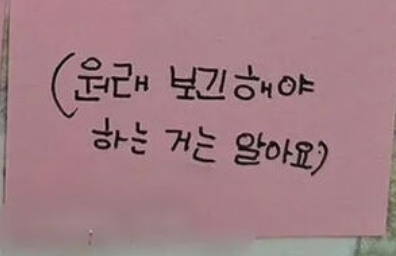 (원래 보긴해야
하는 거는 알아요)